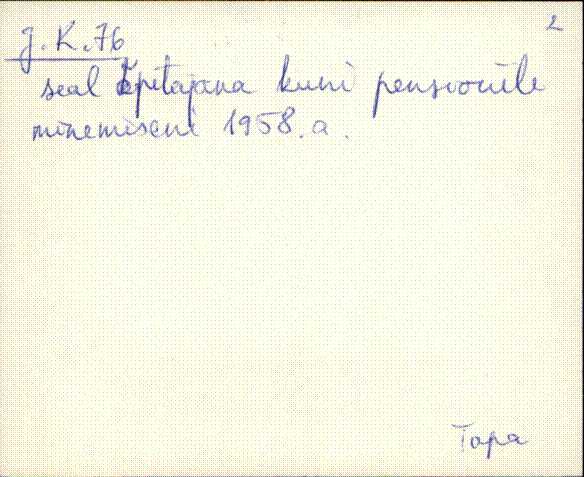 2
J. K. 76
seal õpetajana kuni pensionile
minemiseni 1958. a.
Tapa